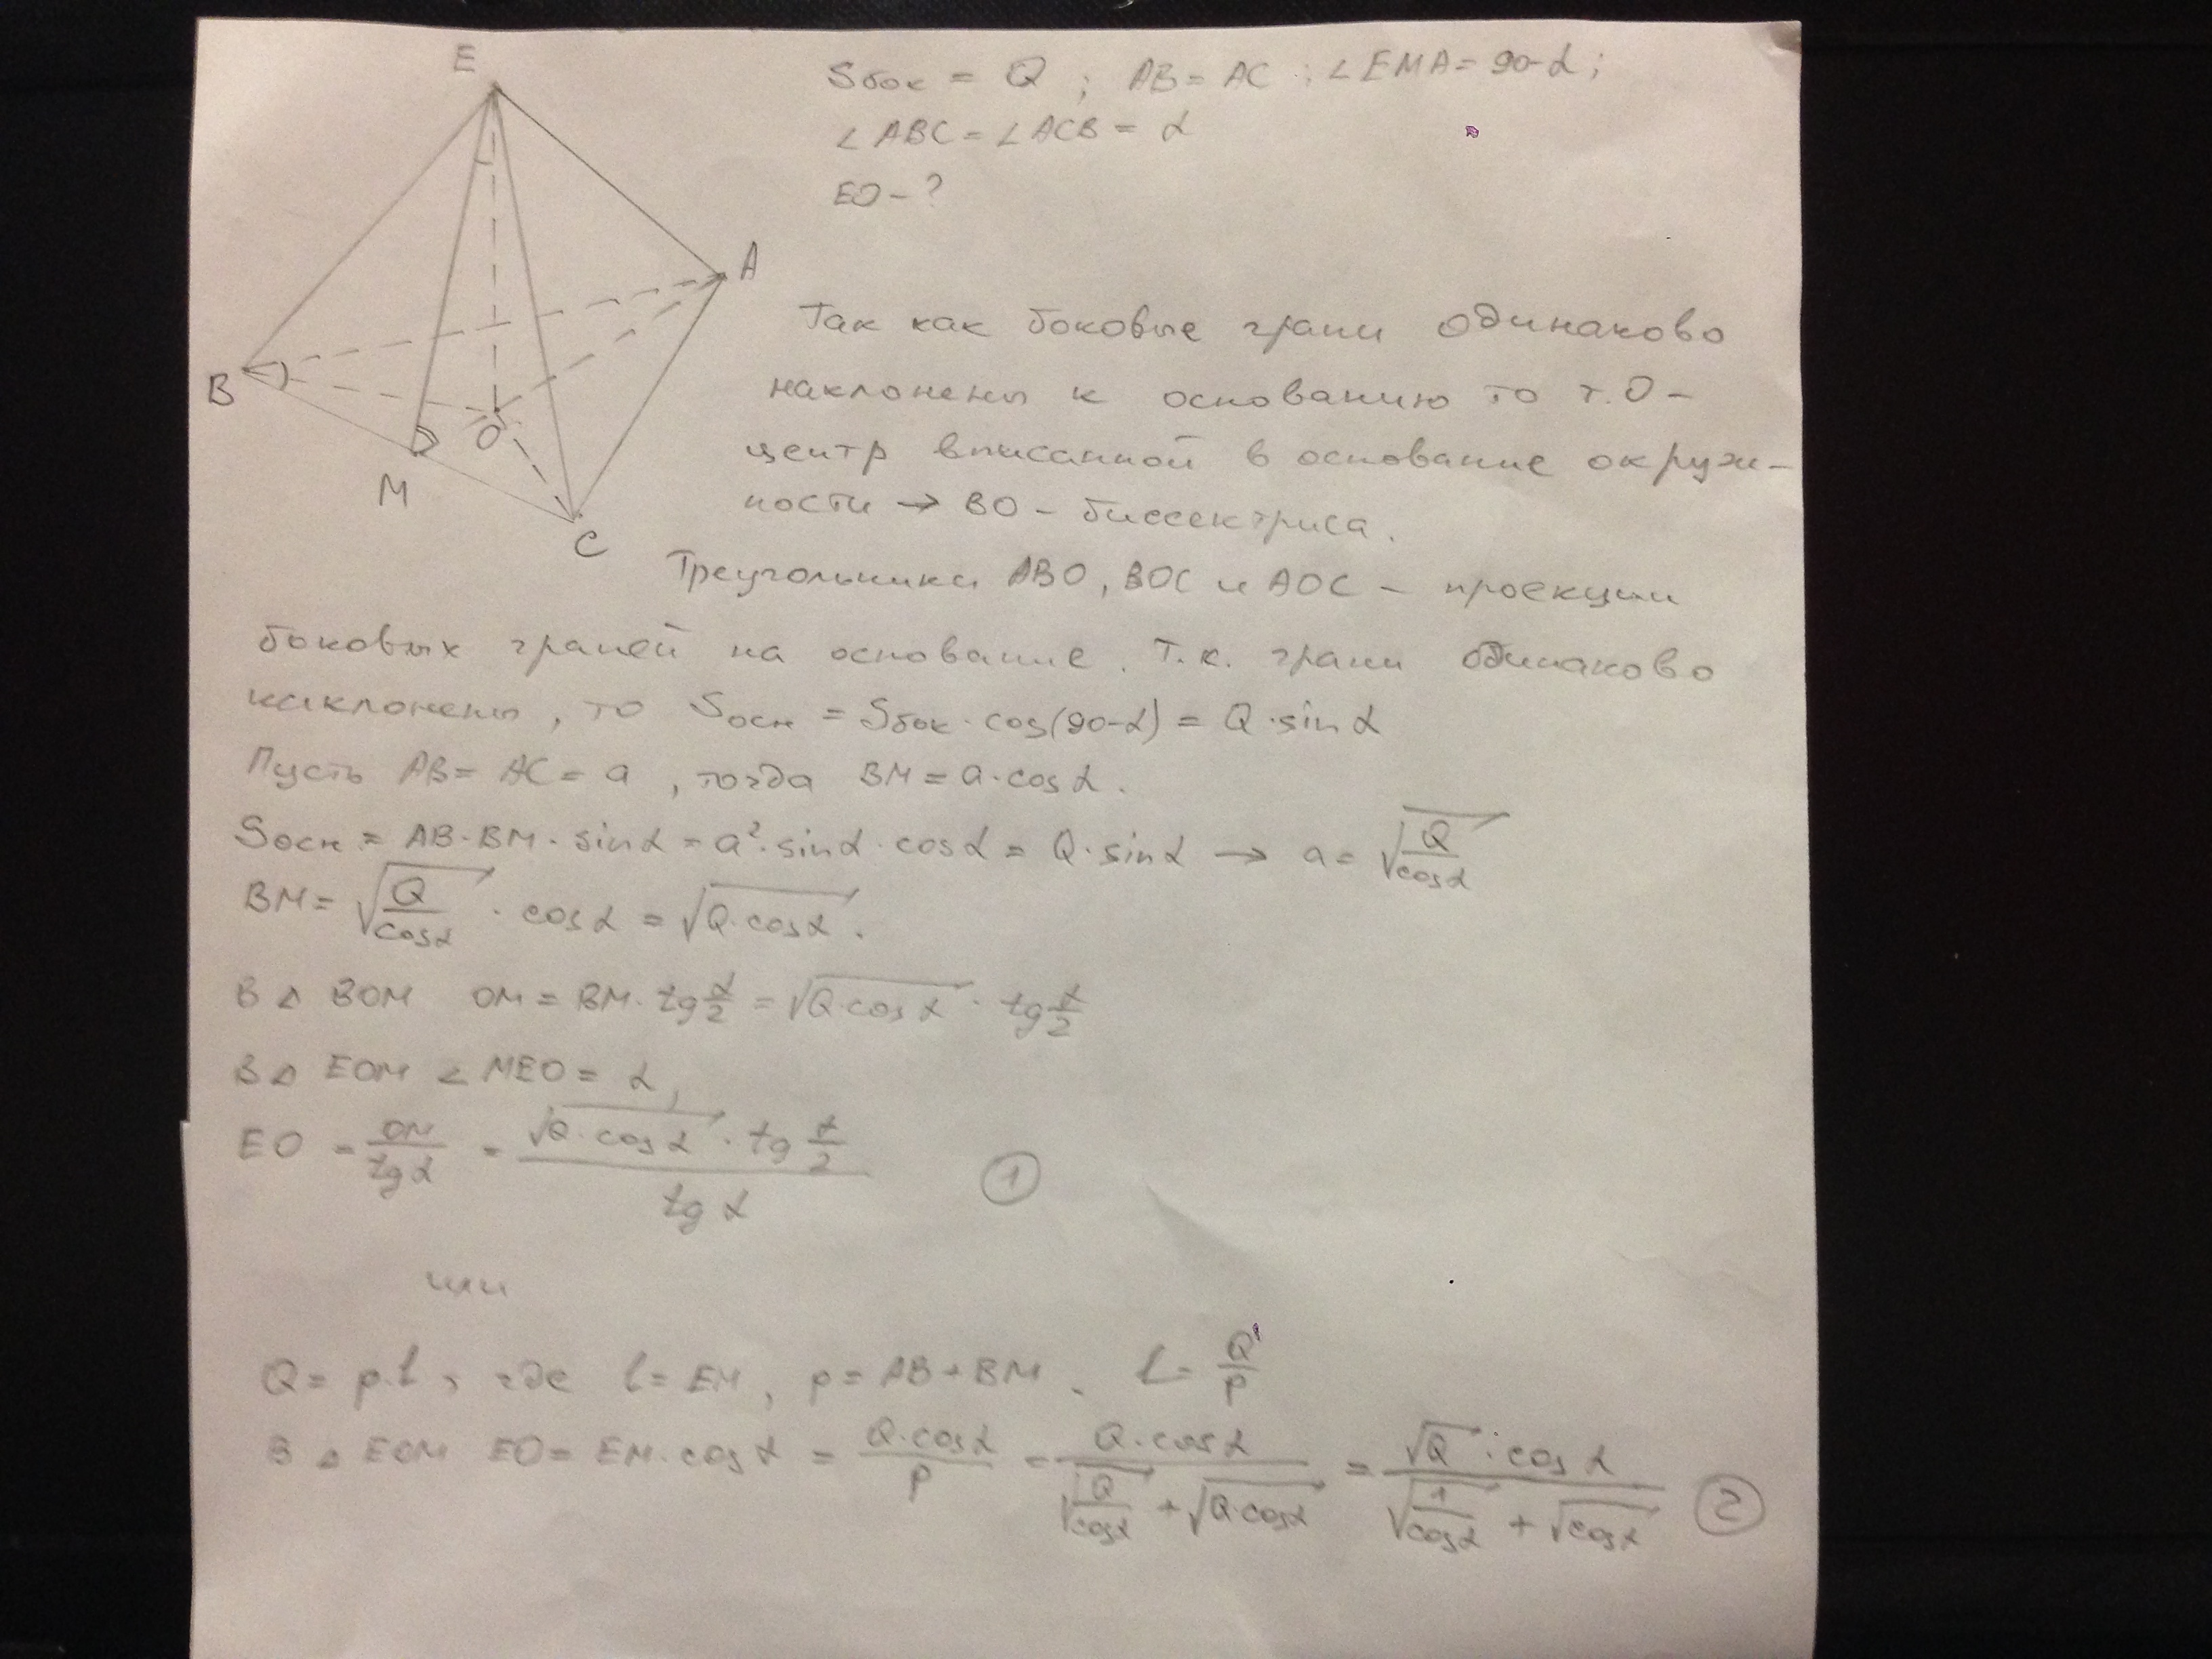 E
Sбок = Q ; AB = AC ; ∠EMA = 90-α ;
∠ABC = ∠ACB = α
EO - ?
A
B
O
M
C
Так как боковые грани одинаково
наклонены к основанию то т.О -
центр вписанной в основание окруж-
ности → BO - биссектриса.
Треугольники ABO, BOC и AOC - проекции
боковых граней на основание. Т.к. грани одинаково
наклонены, то Sосн = Sбок · cos(90-α) = Q · sin α
Пусть AB = AC = a , тогда BM = a · cos α .
Sосн = AB · BM · sin α = a² · sin α · cos α = Q · sin α → a = √(Q/cos α)
BM = √(Q/cos α) · cos α = √(Q · cos α) .
В Δ BOM OM = BM · tg α/2 = √(Q · cos α) · tg α/2
В Δ EOM ∠MEO = α ,
EO = OM/tg α = (√(Q · cos α) · tg α/2)/tg α ①
или
Q = p · l , где l = EM , p = AB + BM . l = Q/p
В Δ EOM EO = EM · cos α = (Q · cos α)/p = (Q · cos α)/(√(Q/cos α) + √(Q · cos α)) = (√Q · cos α)/(√(1/cos α) + √(cos α)) ②